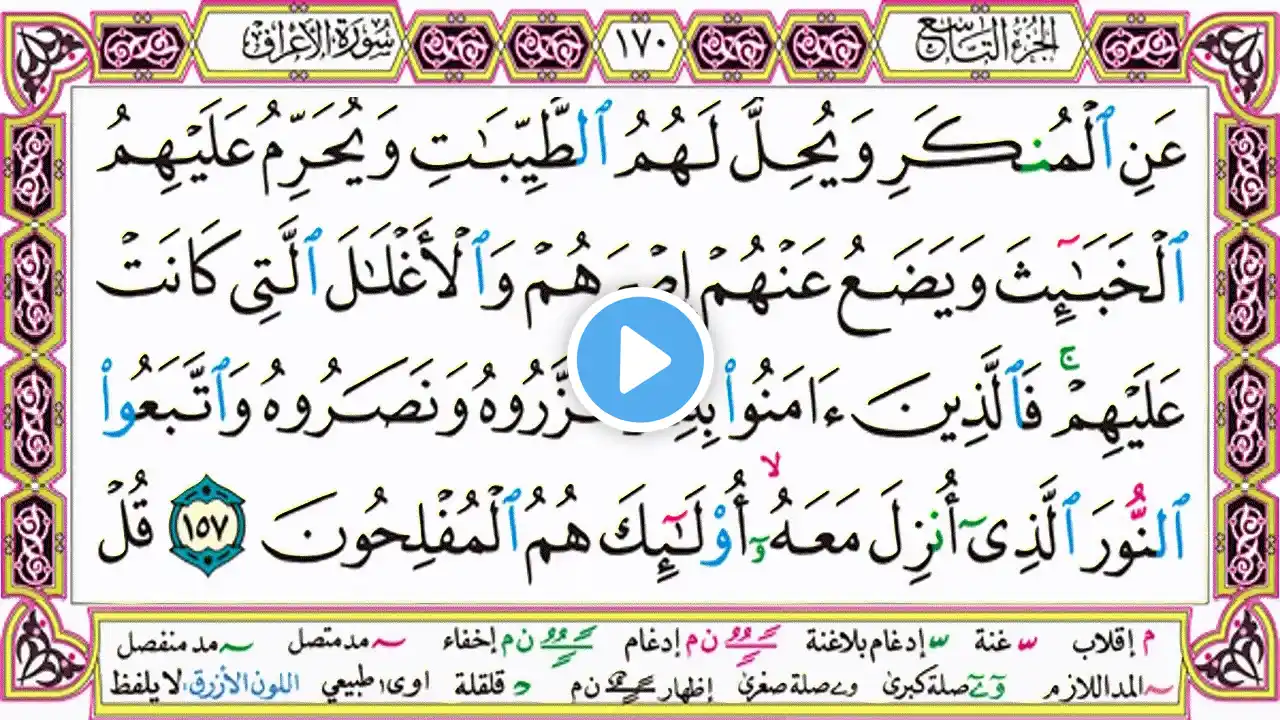 الجزء التاسع
١٧٠
سورة الأعراف
عَنِ ٱلْمُنكَرِ وَيُحِلُّ لَهُمُ ٱلطَّيِّبَٰتِ وَيُحَرِّمُ عَلَيْهِمُ
ٱلْخَبَٰٓئِثَ وَيَضَعُ عَنْهُمْ إِصْرَهُمْ وَٱلْأَغْلَٰلَ ٱلَّتِى كَانَتْ
عَلَيْهِمْ ۚ فَٱلَّذِينَ ءَامَنُوا۟ وَنَصَرُوهُ وَٱتَّبَعُوا۟
ٱلنُّورَ ٱلَّذِىٓ أُنزِلَ مَعَهُۥٓ ۙ أُو۟لَٰٓئِكَ هُمُ ٱلْمُفْلِحُونَ ١٥٧ قُلْ
م إقلاب س غنة س إدغام بلاغنة ن م إدغام ن م إخفاء ~ مد متصل ~ مد منفصل
~ المد اللازم و ے صلة كبرى و ے صلة صغرى إظهار ن م د قلقلة اوى، طبيعي اللون الأزرق، لا يلفظ